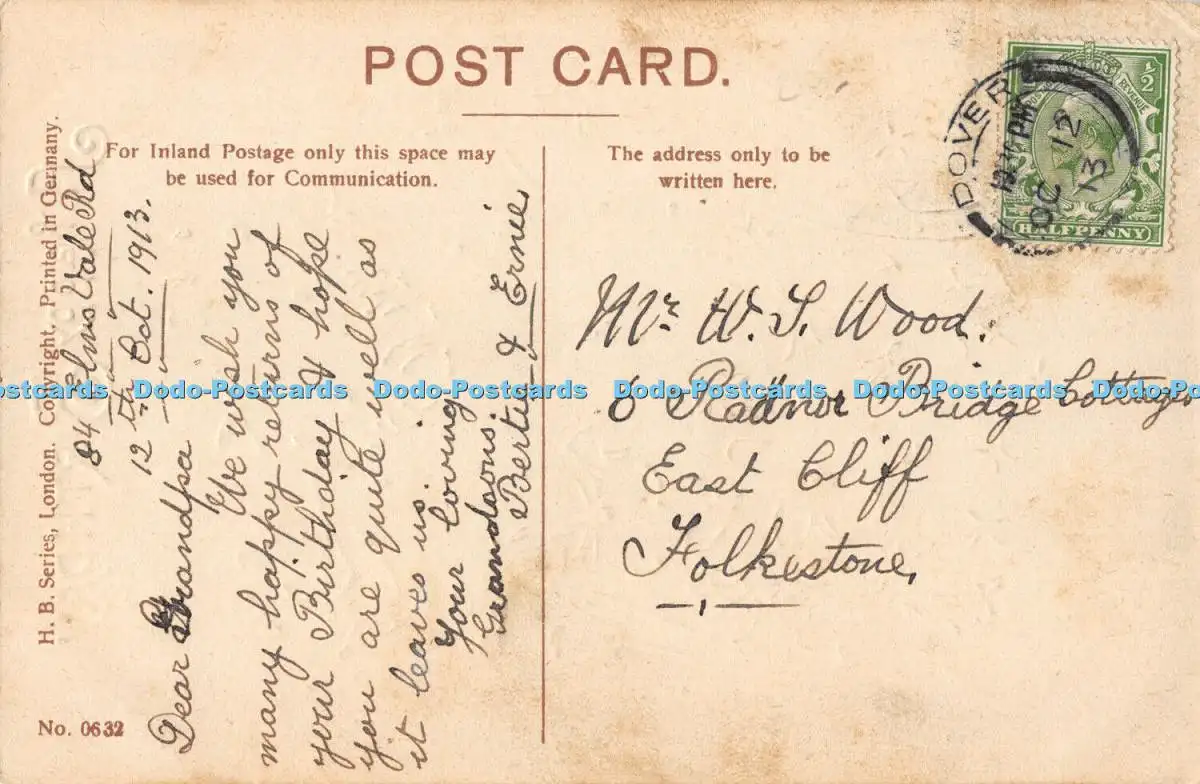 POST CARD.
For Inland Postage only this space may
be used for Communication.
The address only to be
written here.
H. B. Series, London. Copyright. Printed in Germany.
No. 0632
84 Elms Vale Rd
12th Oct. 1913.
Dear Grandpa
We wish you
many happy returns of
your Birthday & hope
you are quite well as
it leaves us.
Your loving
Grandsons,
Bertie & Ernie
Mr. W. S. Wood.
6 Radnor Bridge Cottages
East Cliff
Folkestone,
DOVER
PM
OC 12
13
REVENUE
½
HALFPENNY
Dodo-Postcards Dodo-Postcards Dodo-Postcards Dodo-Postcards Dodo-Postcards Dodo-Postcards